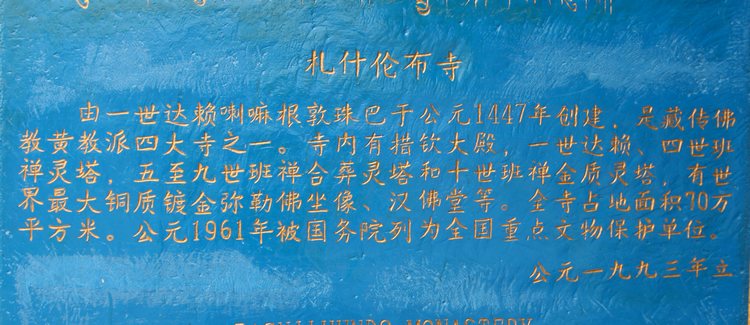 札什伦布寺
由一世达赖喇嘛根敦珠巴于公元1447年创建，是藏传佛
教黄教派四大寺之一。寺内有措钦大殿，一世达赖、四世班
禅灵塔，五至九世班禅合葬灵塔和十世班禅金质灵塔，有世
界最大铜质镀金弥勒佛坐像、汉佛堂等。全寺占地面积70万
平方米。公元1961年被国务院列为全国重点文物保护单位。
公元一九九三年立
MONASTERY